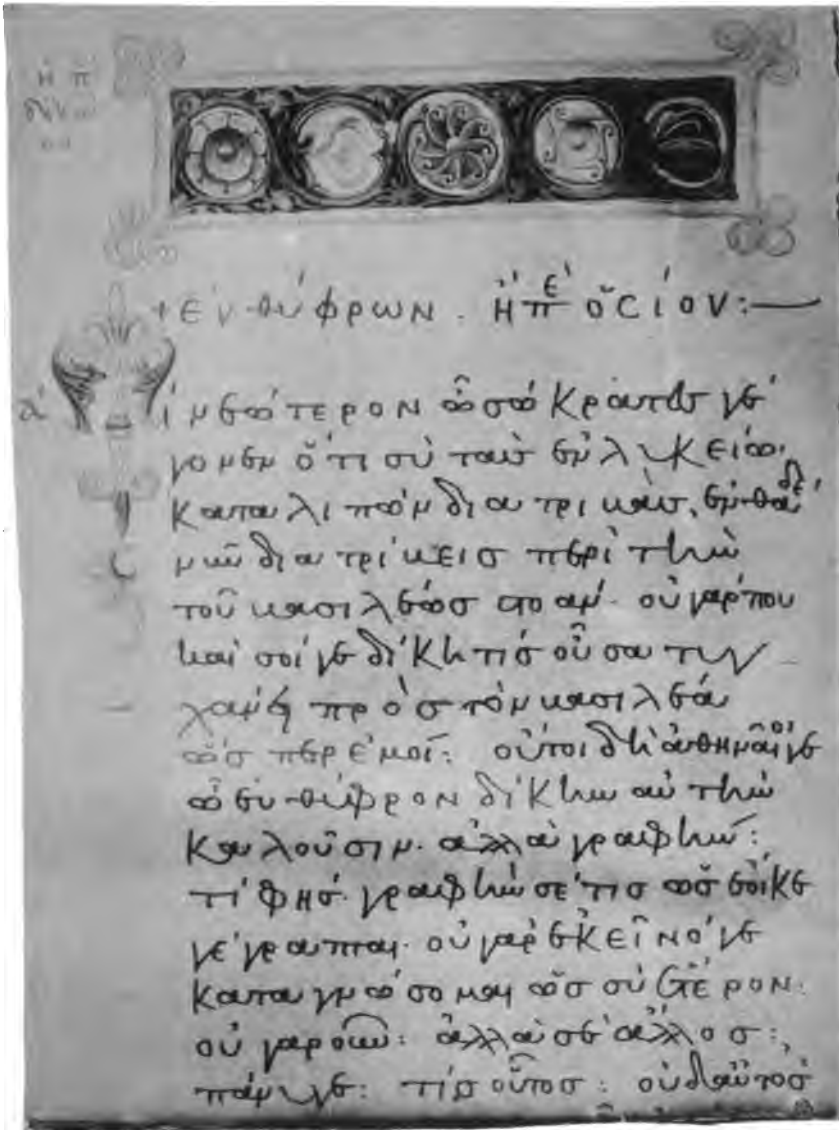 + εὐθύφρων. ἢ πε ὁσίου:—
ί νεώτερον ὦ σώκρατες γέ
γονεν ὅτι σὺ τὰς ἐν λυκείω
καταλιπὼν διατριβὰς, ἐνθάδε
νῦν διατρίβεις περὶ τὴν
τοῦ βασιλέως στοάν· οὐ γάρ που
καὶ σοί γε δίκη τίς οὖσα τυγ
χάνει πρὸς τὸν βασιλέα
ὥσπερ ἐμοί: οὔτοι δὴ ἀθηναῖοί γε
ὦ εὐθύφρον δίκην αὐτὴν
καλοῦσιν· ἀλλὰ γραφήν:
τί φής· γραφὴν σέ τις ὡς ἔοικε
γέγραπται· οὐ γὰρ ἐκεῖνό γε
καταγνώσομαι ὡς σὺ ἕτερον·
οὐ γὰρ οὖν: ἀλλὰ σὲ ἄλλος:
πάνυ γε: τίς οὗτος: οὐδ' αὐτὸς